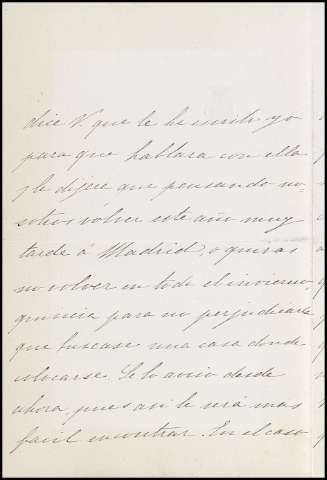 dice V. que le he escrito yo
para que hablara con ella
y le dijera que pensando no-
sotros volver este año muy
tarde á Madrid, o quizas
no volver en todo el invierno,
quisiera para no perjudicarle
que buscase una casa donde
colocarse. Se lo aviso desde
ahora, pues asi le será mas
facil encontrar. En el caso